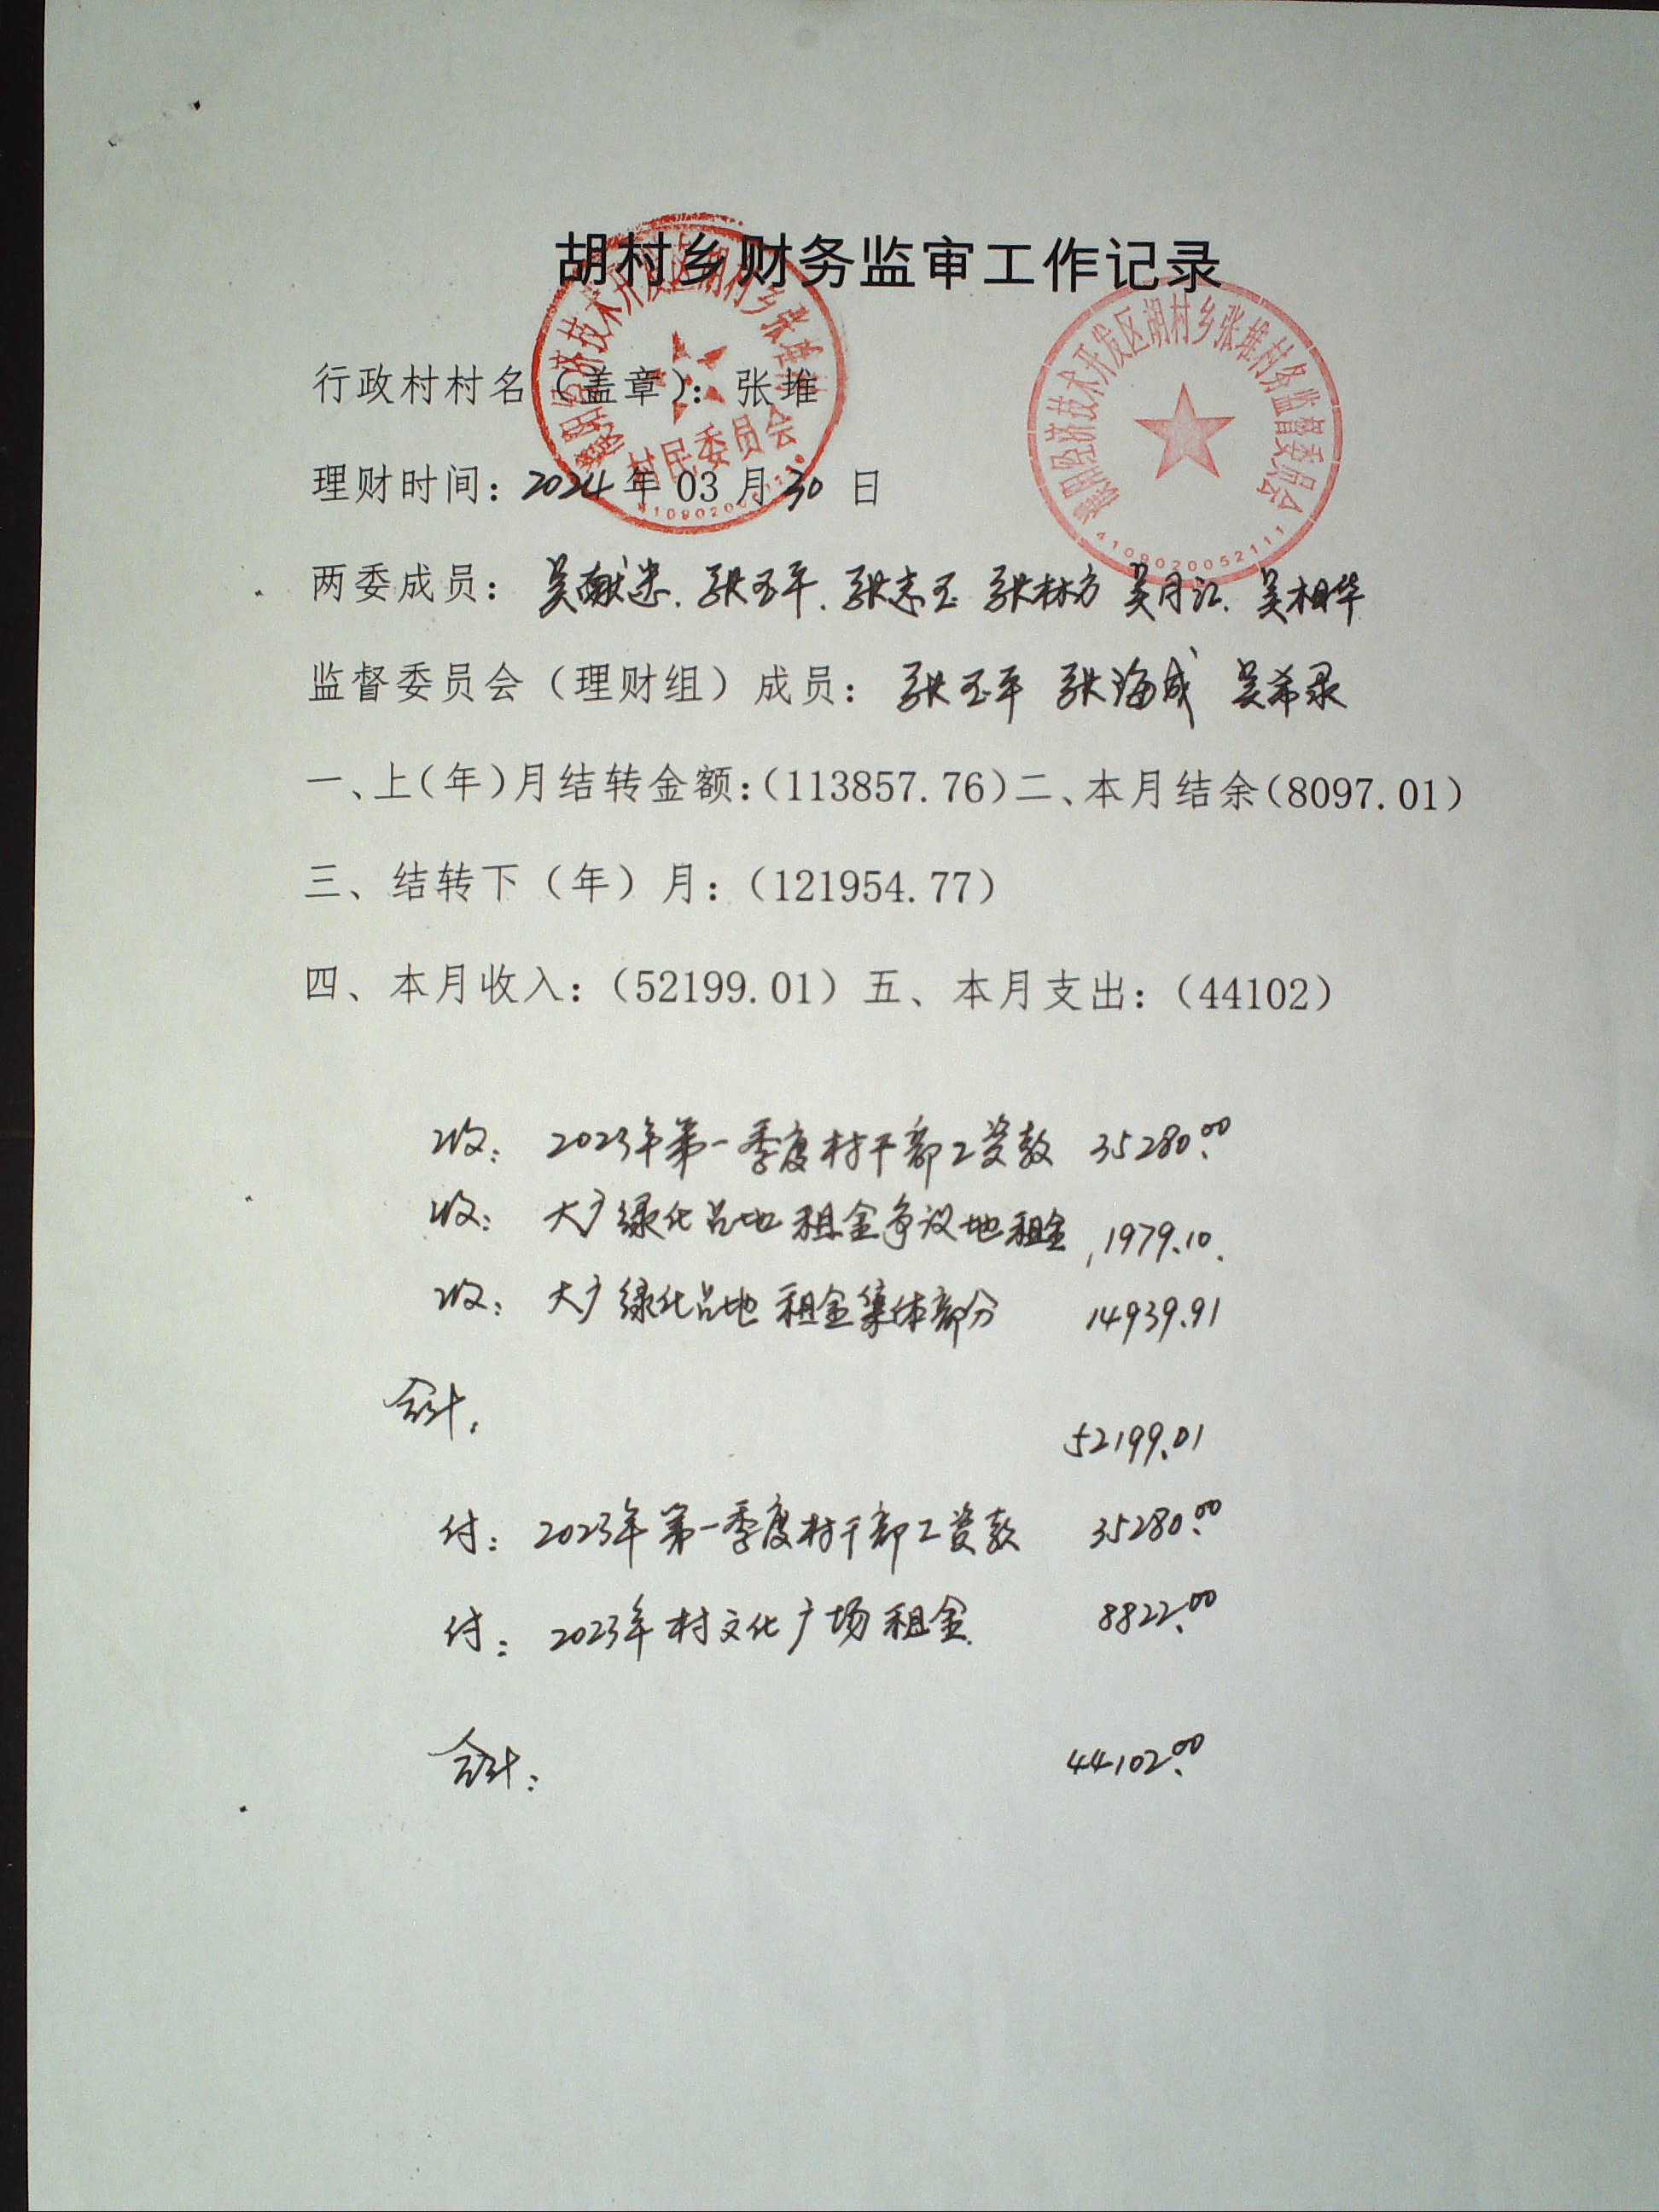 胡村乡财务监审工作记录
行政村村名（盖章）：张堆
村民委员会
濮阳经济技术开发区胡村乡张堆村务监督委员会
4109020052111
理财时间：2024年03月30日
两委成员：吴献忠、张玉平、张志玉 张林方 吴月江、吴相华
监督委员会（理财组）成员：张玉平 张海成 吴希录
一、上（年）月结转金额：（113857.76）二、本月结余（8097.01）
三、结转下（年）月：（121954.77）
四、本月收入：（52199.01）五、本月支出：（44102）
收：2023年第一季度村干部工资款 35280.00
收：大广绿化占地租金争议地租金 1979.10
收：大广绿化占地租金集体部分 14939.91
合计： 52199.01
付：2023年第一季度村干部工资款 35280.00
付：2023年村文化广场租金 8822.00
合计： 44102.00